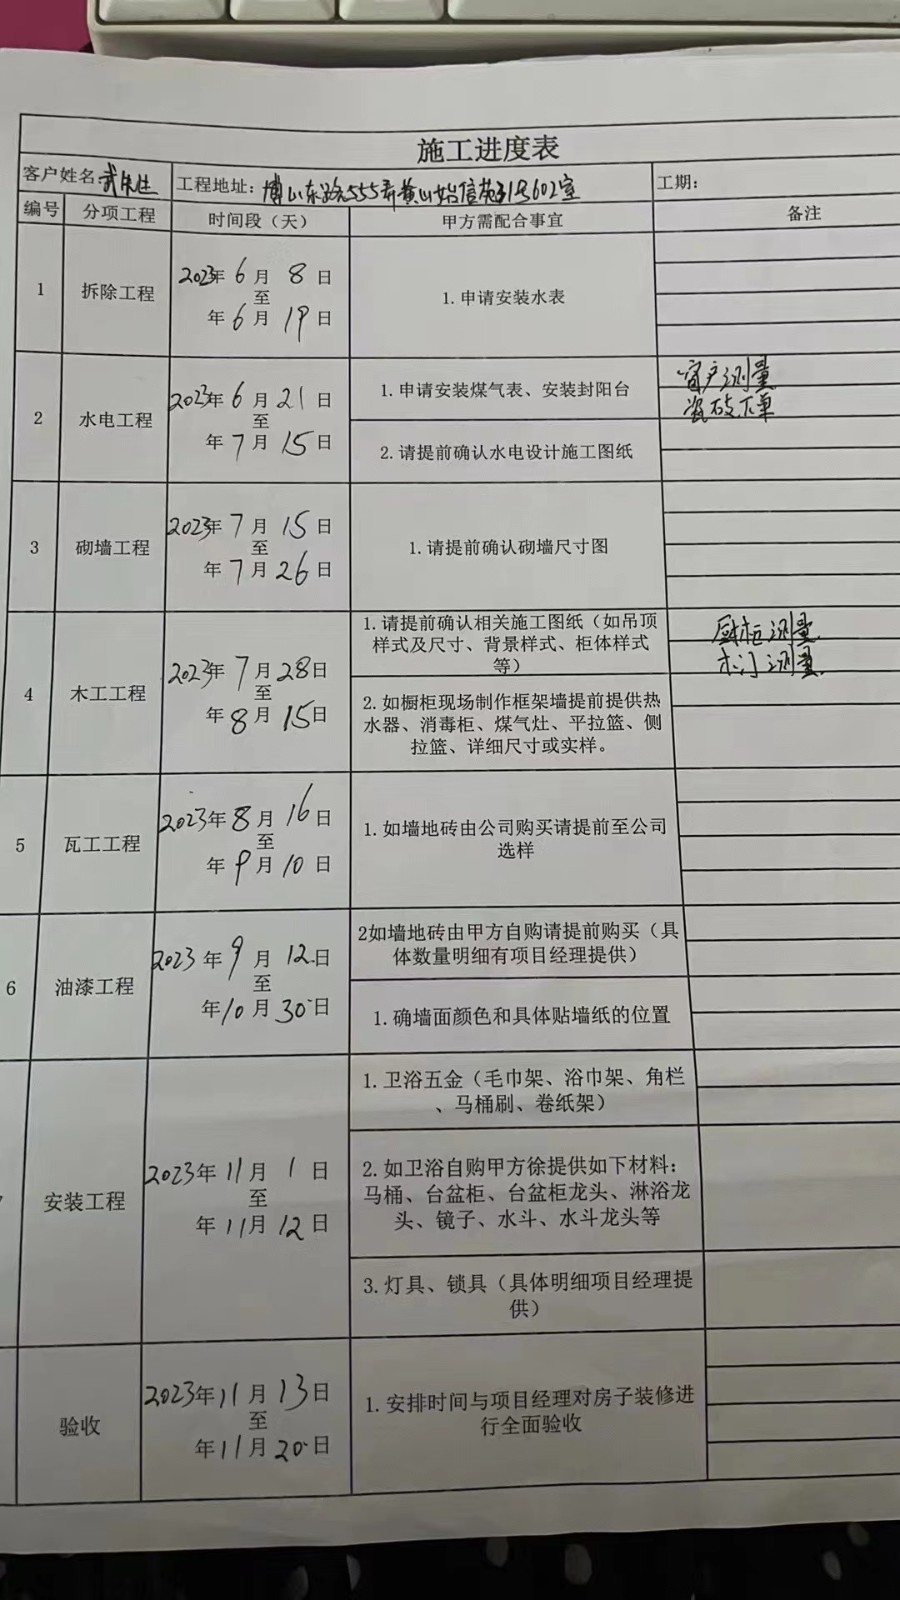 施工进度表
客户姓名: 工程地址: 博山东路555弄黄山始信苑31号602室 工期:
编号 分项工程 时间段（天） 甲方需配合事宜 备注
1 拆除工程
2023年6月8日
至
年6月19日
1.申请安装水表
2 水电工程
2023年6月21日
至
年7月15日
1.申请安装煤气表、安装封阳台
2.请提前确认水电设计施工图纸
窗户测量
瓷砖下单
3 砌墙工程
2023年7月15日
至
年7月26日
1.请提前确认砌墙尺寸图
4 木工工程
2023年7月28日
至
年8月15日
1.请提前确认相关施工图纸（如吊顶
样式及尺寸、背景样式、柜体样式
等）
2.如橱柜现场制作框架墙提前提供热
水器、消毒柜、煤气灶、平拉篮、侧
拉篮、详细尺寸或实样。
厨柜测量
木门测量
5 瓦工工程
2023年8月16日
至
年9月10日
1.如墙地砖由公司购买请提前至公司
选样
6 油漆工程
2023年9月12日
至
年10月30日
2如墙地砖由甲方自购请提前购买（具
体数量明细有项目经理提供）
1.确墙面颜色和具体贴墙纸的位置
安装工程
2023年11月1日
至
年11月12日
1.卫浴五金（毛巾架、浴巾架、角栏
、马桶刷、卷纸架）
2.如卫浴自购甲方徐提供如下材料：
马桶、台盆柜、台盆柜龙头、淋浴龙
头、镜子、水斗、水斗龙头等
3.灯具、锁具（具体明细项目经理提
供）
验收
2023年11月13日
至
年11月20日
1.安排时间与项目经理对房子装修进
行全面验收